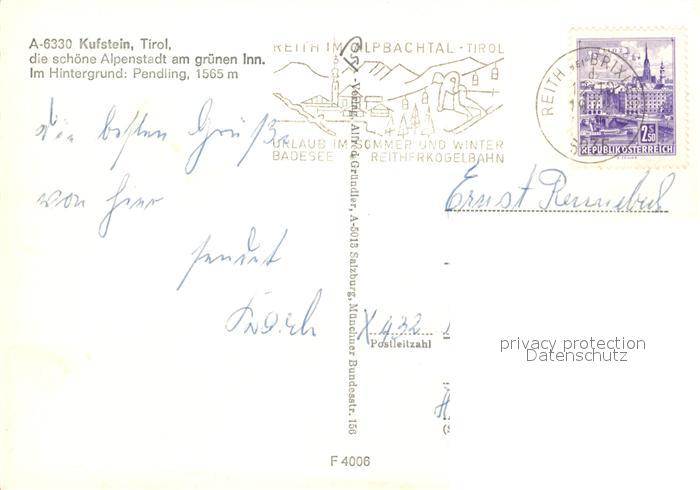 A-6330 Kufstein, Tirol,
die schöne Alpenstadt am grünen Inn.
Im Hintergrund: Pendling, 1565 m
REITH IM ALPBACHTAL - TIROL
URLAUB IM SOMMER UND WINTER
BADESEE REITHERKOGELBAHN
REITH BEI BRIX
2.50
REPUBLIK ÖSTERREICH
Die besten Grüße
von hier
sendet
Ernst
Verlag Alfred Gründler, A-5013 Salzburg, Münchner Bundesstr. 156
Postleitzahl
privacy protection
Datenschutz
F 4006